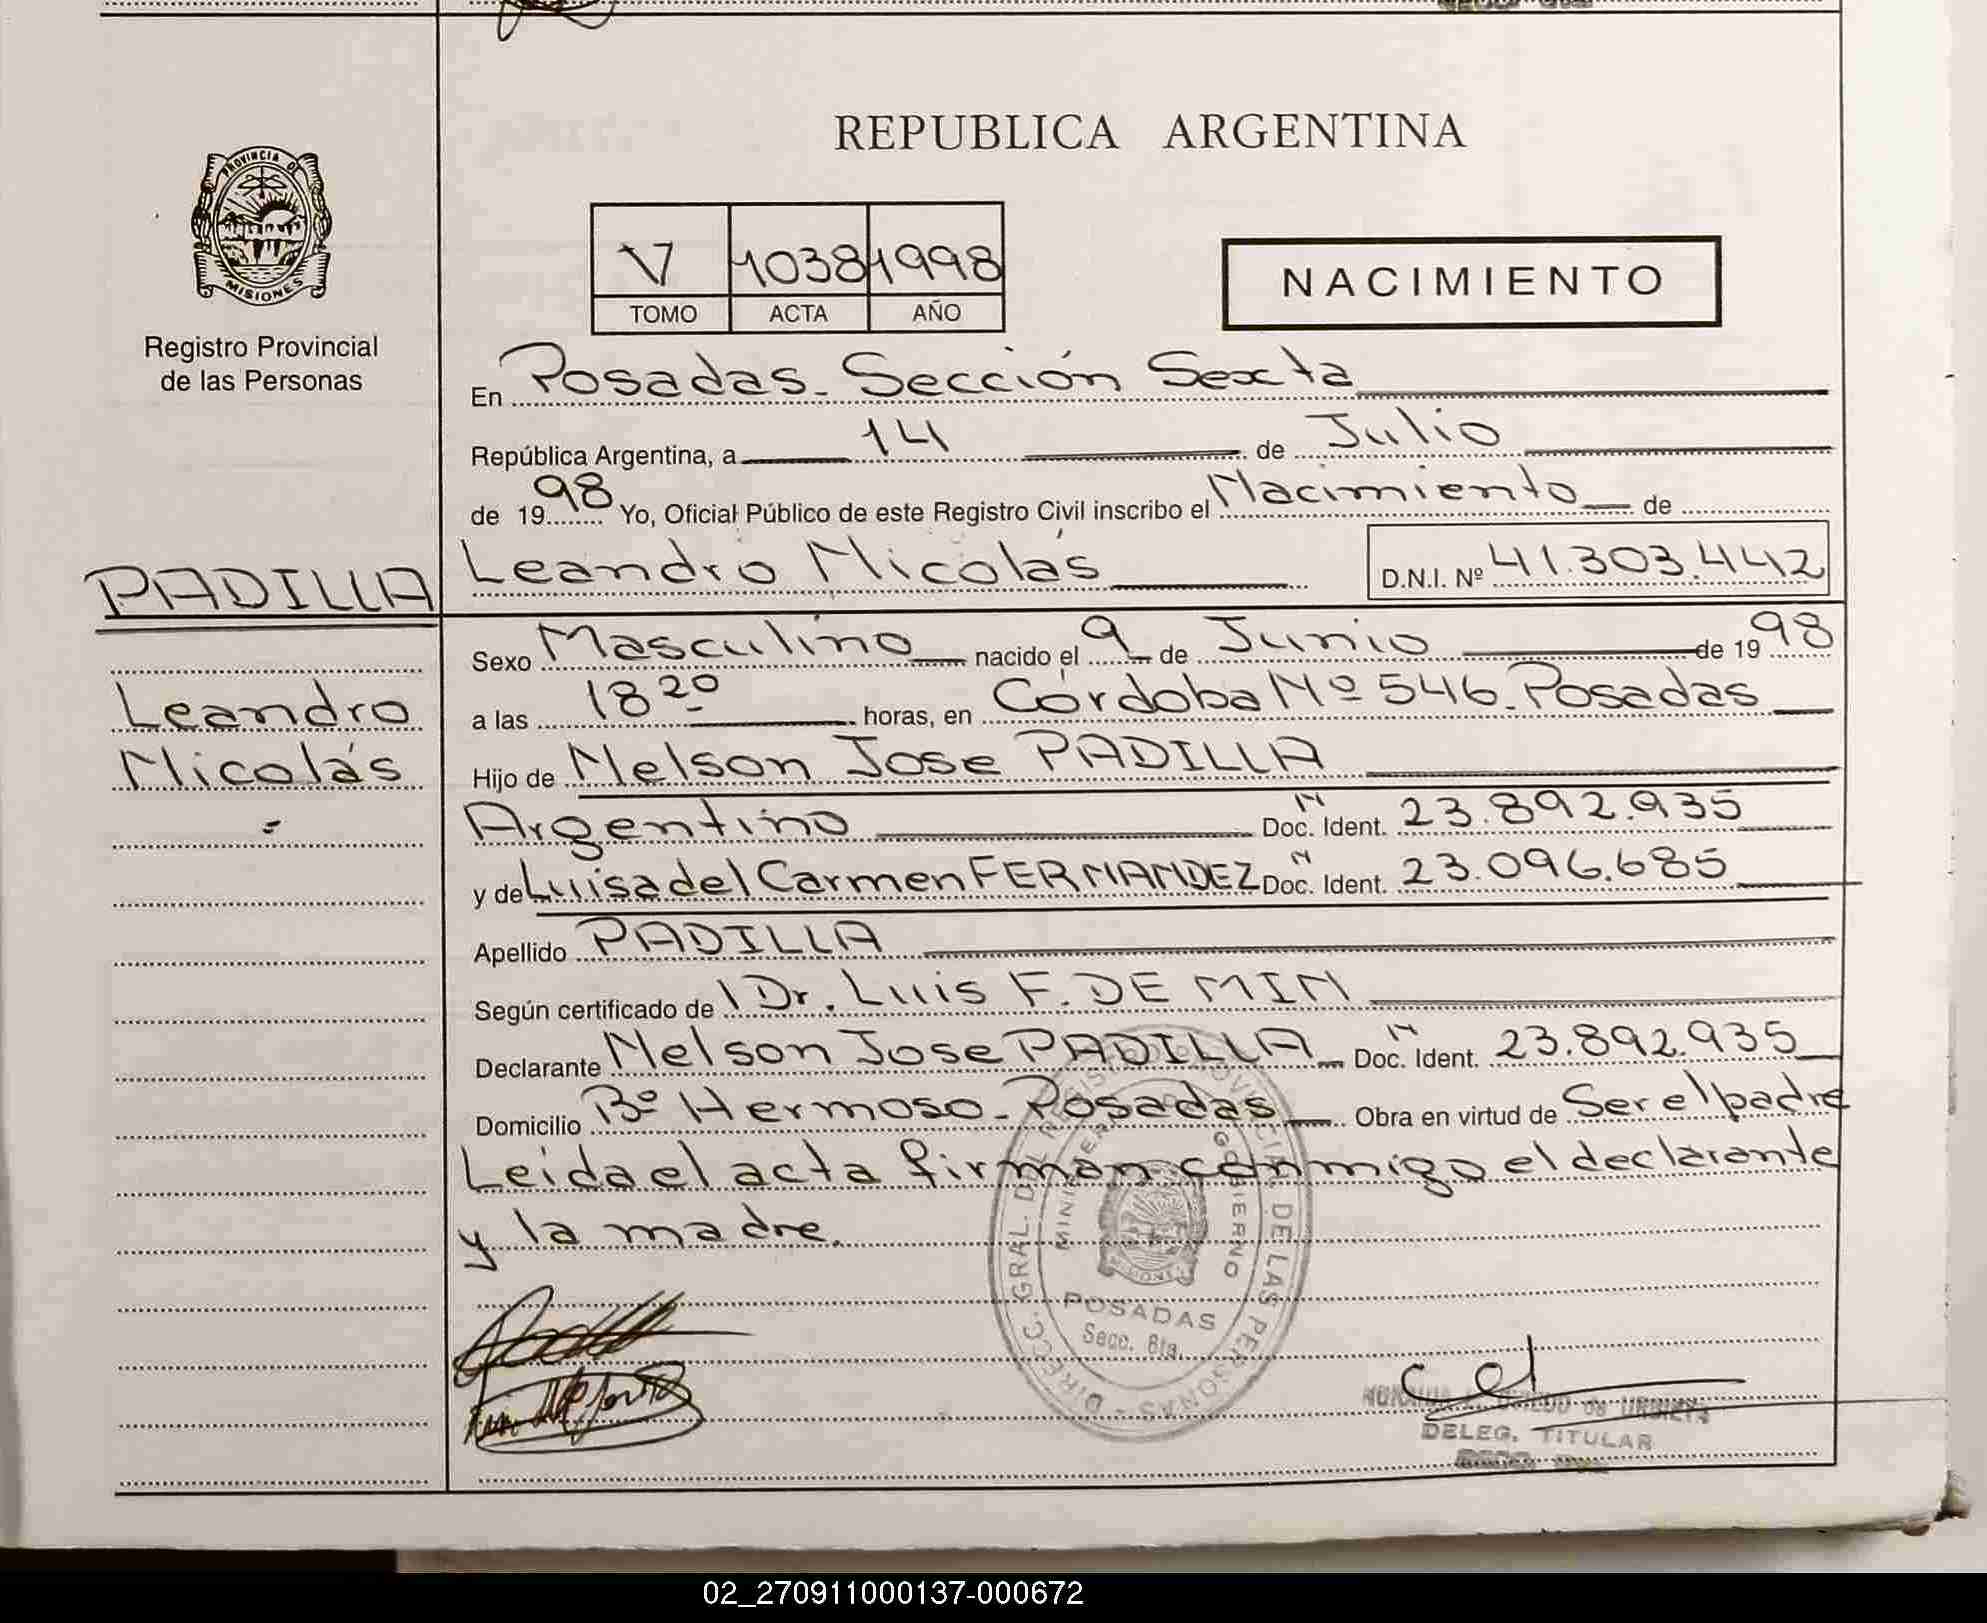 REPUBLICA ARGENTINA
PROVINCIA DE
MISIONES
Registro Provincial
de las Personas
V 1038 1998
TOMO ACTA AÑO
NACIMIENTO
En Posadas - Sección Sexta
República Argentina, a 14 de Julio
de 1998 Yo, Oficial Público de este Registro Civil inscribo el Nacimiento de
Leandro Nicolás D.N.I. Nº 41.303.442
PADILLA
Leandro
Nicolás
Sexo Masculino nacido el 9 de Junio de 1998
a las 18 20 horas, en Córdoba Nº 546. Posadas
Hijo de Nelson Jose PADILLA
Argentino Doc. N Ident. 23.892.935
y de Luisa del Carmen FERNANDEZ Doc. N Ident. 23.096.685
Apellido PADILLA
Según certificado de Dr. Luis F. DE MIN
Declarante Nelson Jose PADILLA Doc. N Ident. 23.892.935
Domicilio Bº Hermoso - Posadas Obra en virtud de Ser el padre
Leida el acta firman conmigo el declarante
y la madre.
DIRECC. GRAL. DEL REGISTRO PROVINCIAL DE LAS PERSONAS -
GOBIERNO
POSADAS
Secc. 6ta.
DELEG. TITULAR
02_270911000137-000672